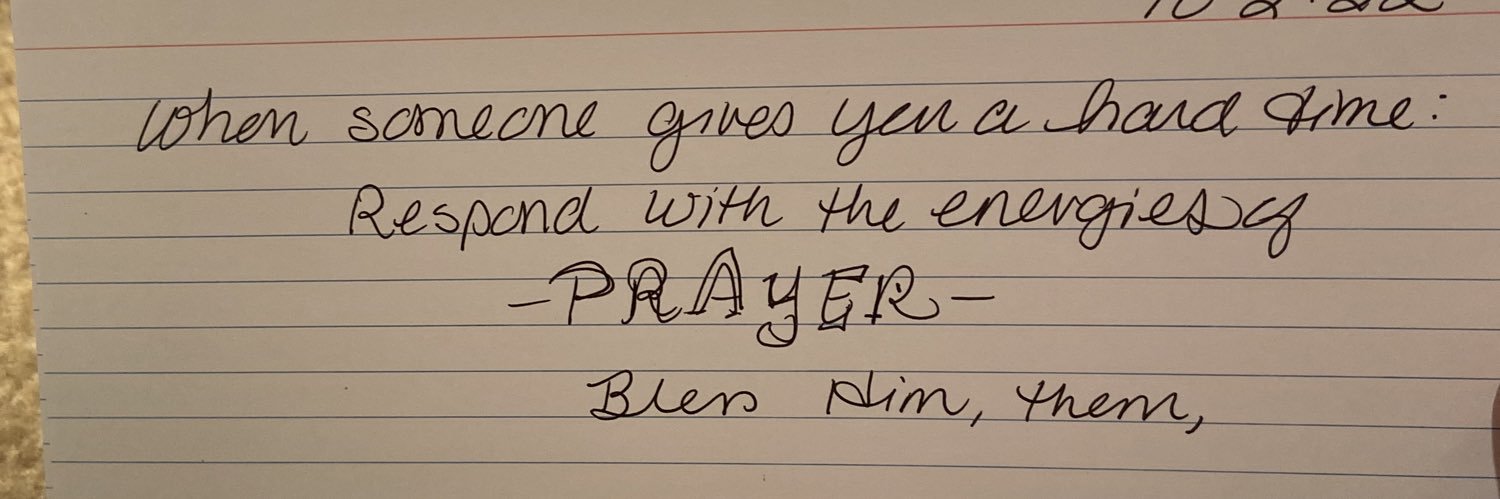 When someone gives you a hard time:
Respond with the energies of
-PRAYER-
Bless Him, them,